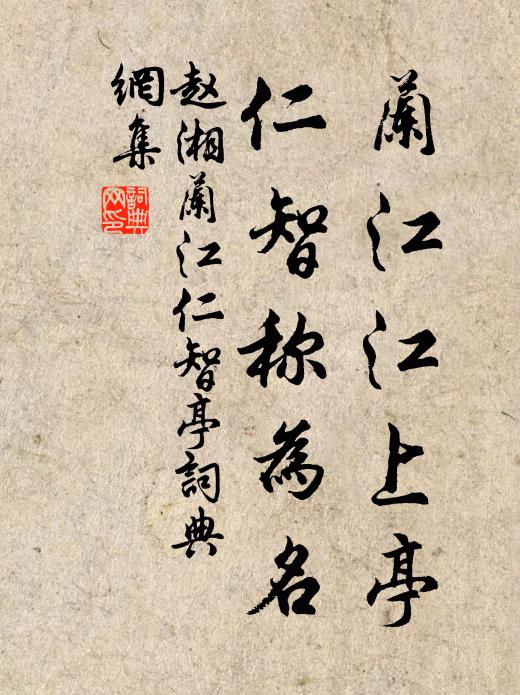 蘭江江上亭
仁智称為名
赵湘蘭江仁智亭詞典
網集
詞典
网印